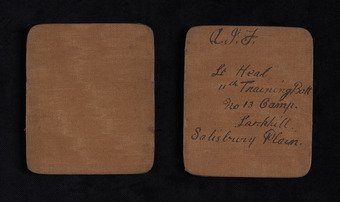 A.I.F.
Lt Heal,
11th Training Batt
No 13 Camp.
Larkhill,
Salisbury Plain.